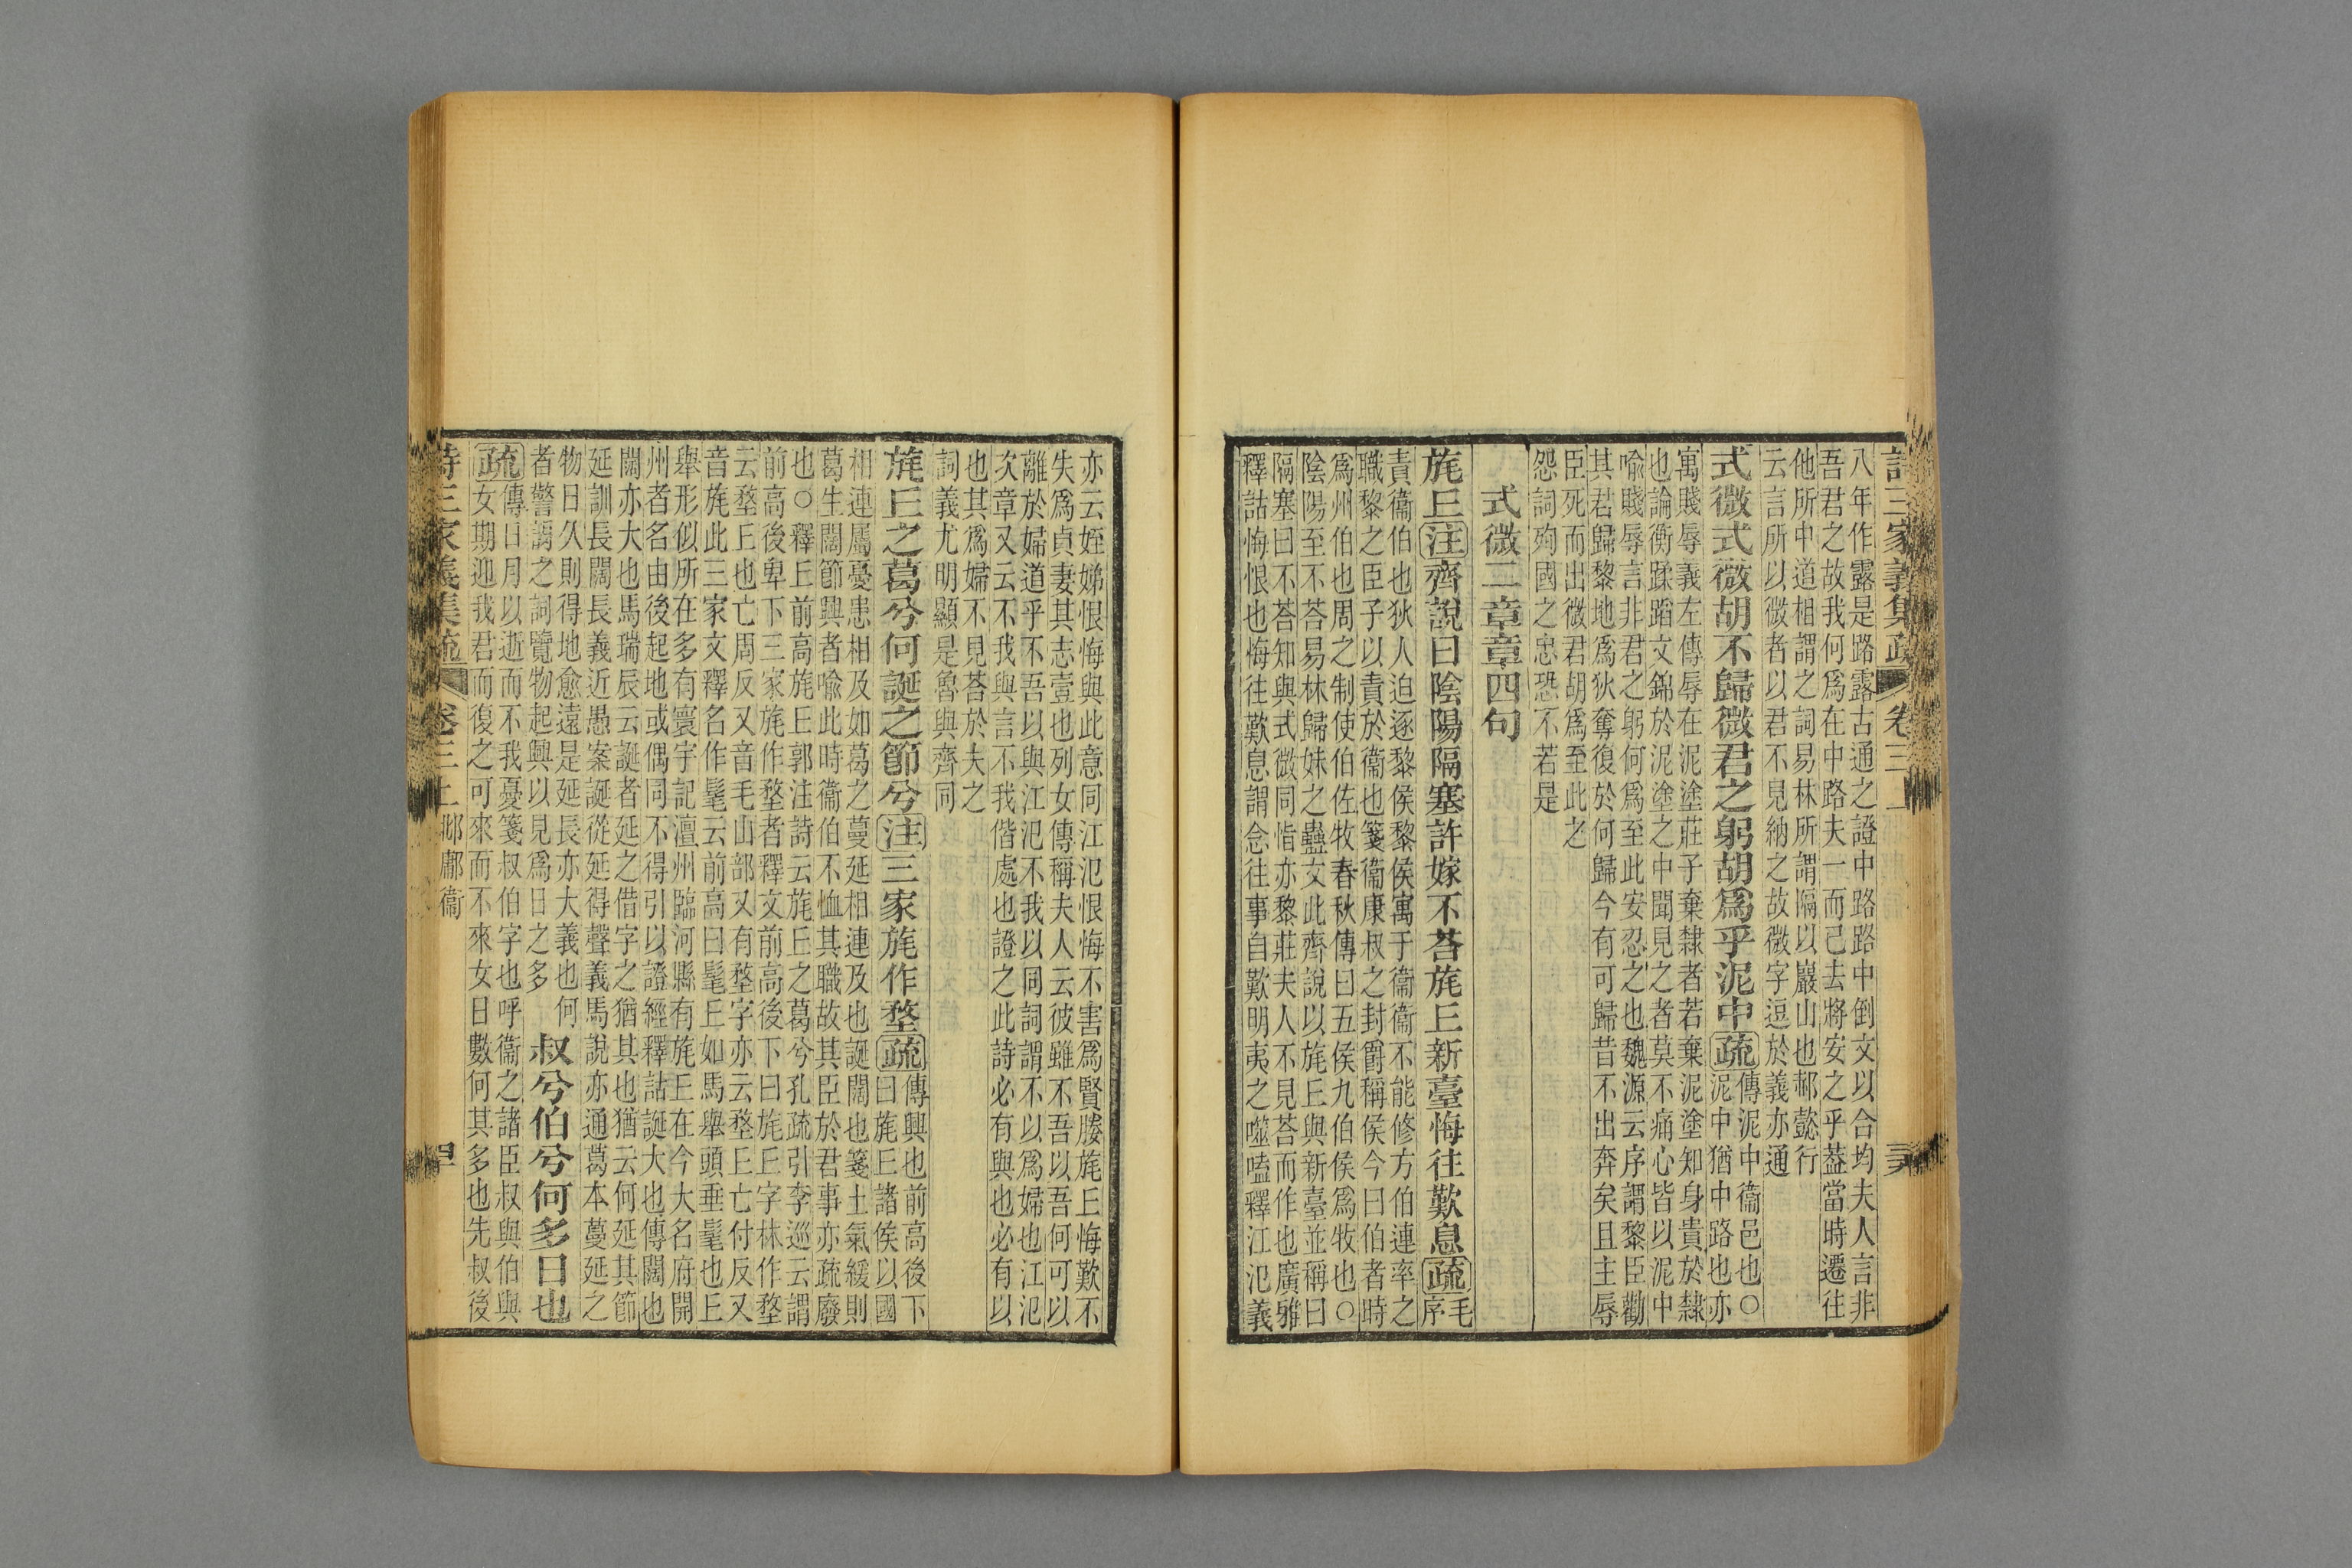 詩三家義集疏 卷三上
八年作露是路露古通之證中路路中倒文以合均夫人言非
吾君之故我何爲在中路夫一而已去將安之乎葢當時遷往
他所中道相謂之詞易林所謂隔以巖山也郝懿行
云言所以微者以君不見納之故微字逗於義亦通
式微式微胡不歸微君之躬胡爲乎泥中疏
傳泥中衞邑也○
泥中猶中路也亦
寓賤辱義左傳辱在泥塗莊子棄隸者若棄泥塗知身貴於隸
也論衡蹂蹈文錦於泥塗之中聞見之者莫不痛心皆以泥中
喻賤辱言非君之躬何爲至此安忍之也魏源云序謂黎臣勸
其君歸黎地爲狄奪復於何歸今有可歸昔不出奔矣且主辱
臣死而出微君胡爲至此之
怨詞殉國之忠恐不若是
式微二章章四句
旄丘注齊說曰陰陽隔塞許嫁不荅旄丘新臺悔往歎息疏
毛
序
責衞伯也狄人迫逐黎侯黎侯寓于衞衞不能修方伯連率之
職黎之臣子以責於衞也箋衞康叔之封爵稱侯今曰伯者時
爲州伯也周之制使伯佐牧春秋傳曰五侯九伯侯爲牧也○
陰陽至不荅易林歸妹之蠱文此齊說以旄丘與新臺並稱曰
隔塞曰不荅知與式微同恉亦黎莊夫人不見荅而作也廣雅
釋詁悔恨也悔往歎息謂念往事自歎明夷之噬嗑釋江汜義
亦云姪娣恨悔與此意同江汜恨悔不害爲賢媵旄丘悔歎不
失爲貞妻其志壹也列女傳稱夫人云彼雖不吾以吾何可以
離於婦道乎不吾以與江汜不我以同詞謂不以爲婦也江汜
次章又云不我與言不我偕處也證之此詩必有與也必有以
也其爲婦不見荅於夫之
詞義尤明顯是魯與齊同
旄丘之葛兮何誕之節兮注三家旄作堥疏
傳興也前高後下
曰旄丘諸侯以國
相連屬憂患相及如葛之蔓延相連及也誕闊也箋土氣緩則
葛生闊節興者喻此時衞伯不恤其職故其臣於君事亦疏廢
也○釋丘前高旄丘郭注詩云旄丘之葛兮孔疏引李巡云謂
前高後卑下三家旄作堥者釋文前高後下曰旄丘字林作堥
云堥丘也亡周反又音毛山部又有堥字亦云堥丘亡付反又
音旄此三家文釋名作髦云前高曰髦丘如馬舉頭垂髦也丘
舉形似所在多有寰宇記澶州臨河縣有旄丘在今大名府開
州者名由後起地或偶同不得引以證經釋詁誕大也傳闊也
闊亦大也馬瑞辰云誕者延之借字之猶其也猶云何延其節
延訓長闊長義近愚案誕從延得聲義馬說亦通葛本蔓延之
物日久則得地愈遠是延長亦大義也何
者警謂之詞覽物起興以見爲日之多
叔兮伯兮何多日也
疏
傳日月以逝而不我憂箋叔伯字也呼衞之諸臣叔與伯與
女期迎我君而復之可來而不來女日數何其多也先叔後
詩三家義集疏 卷三上 邶鄘衞